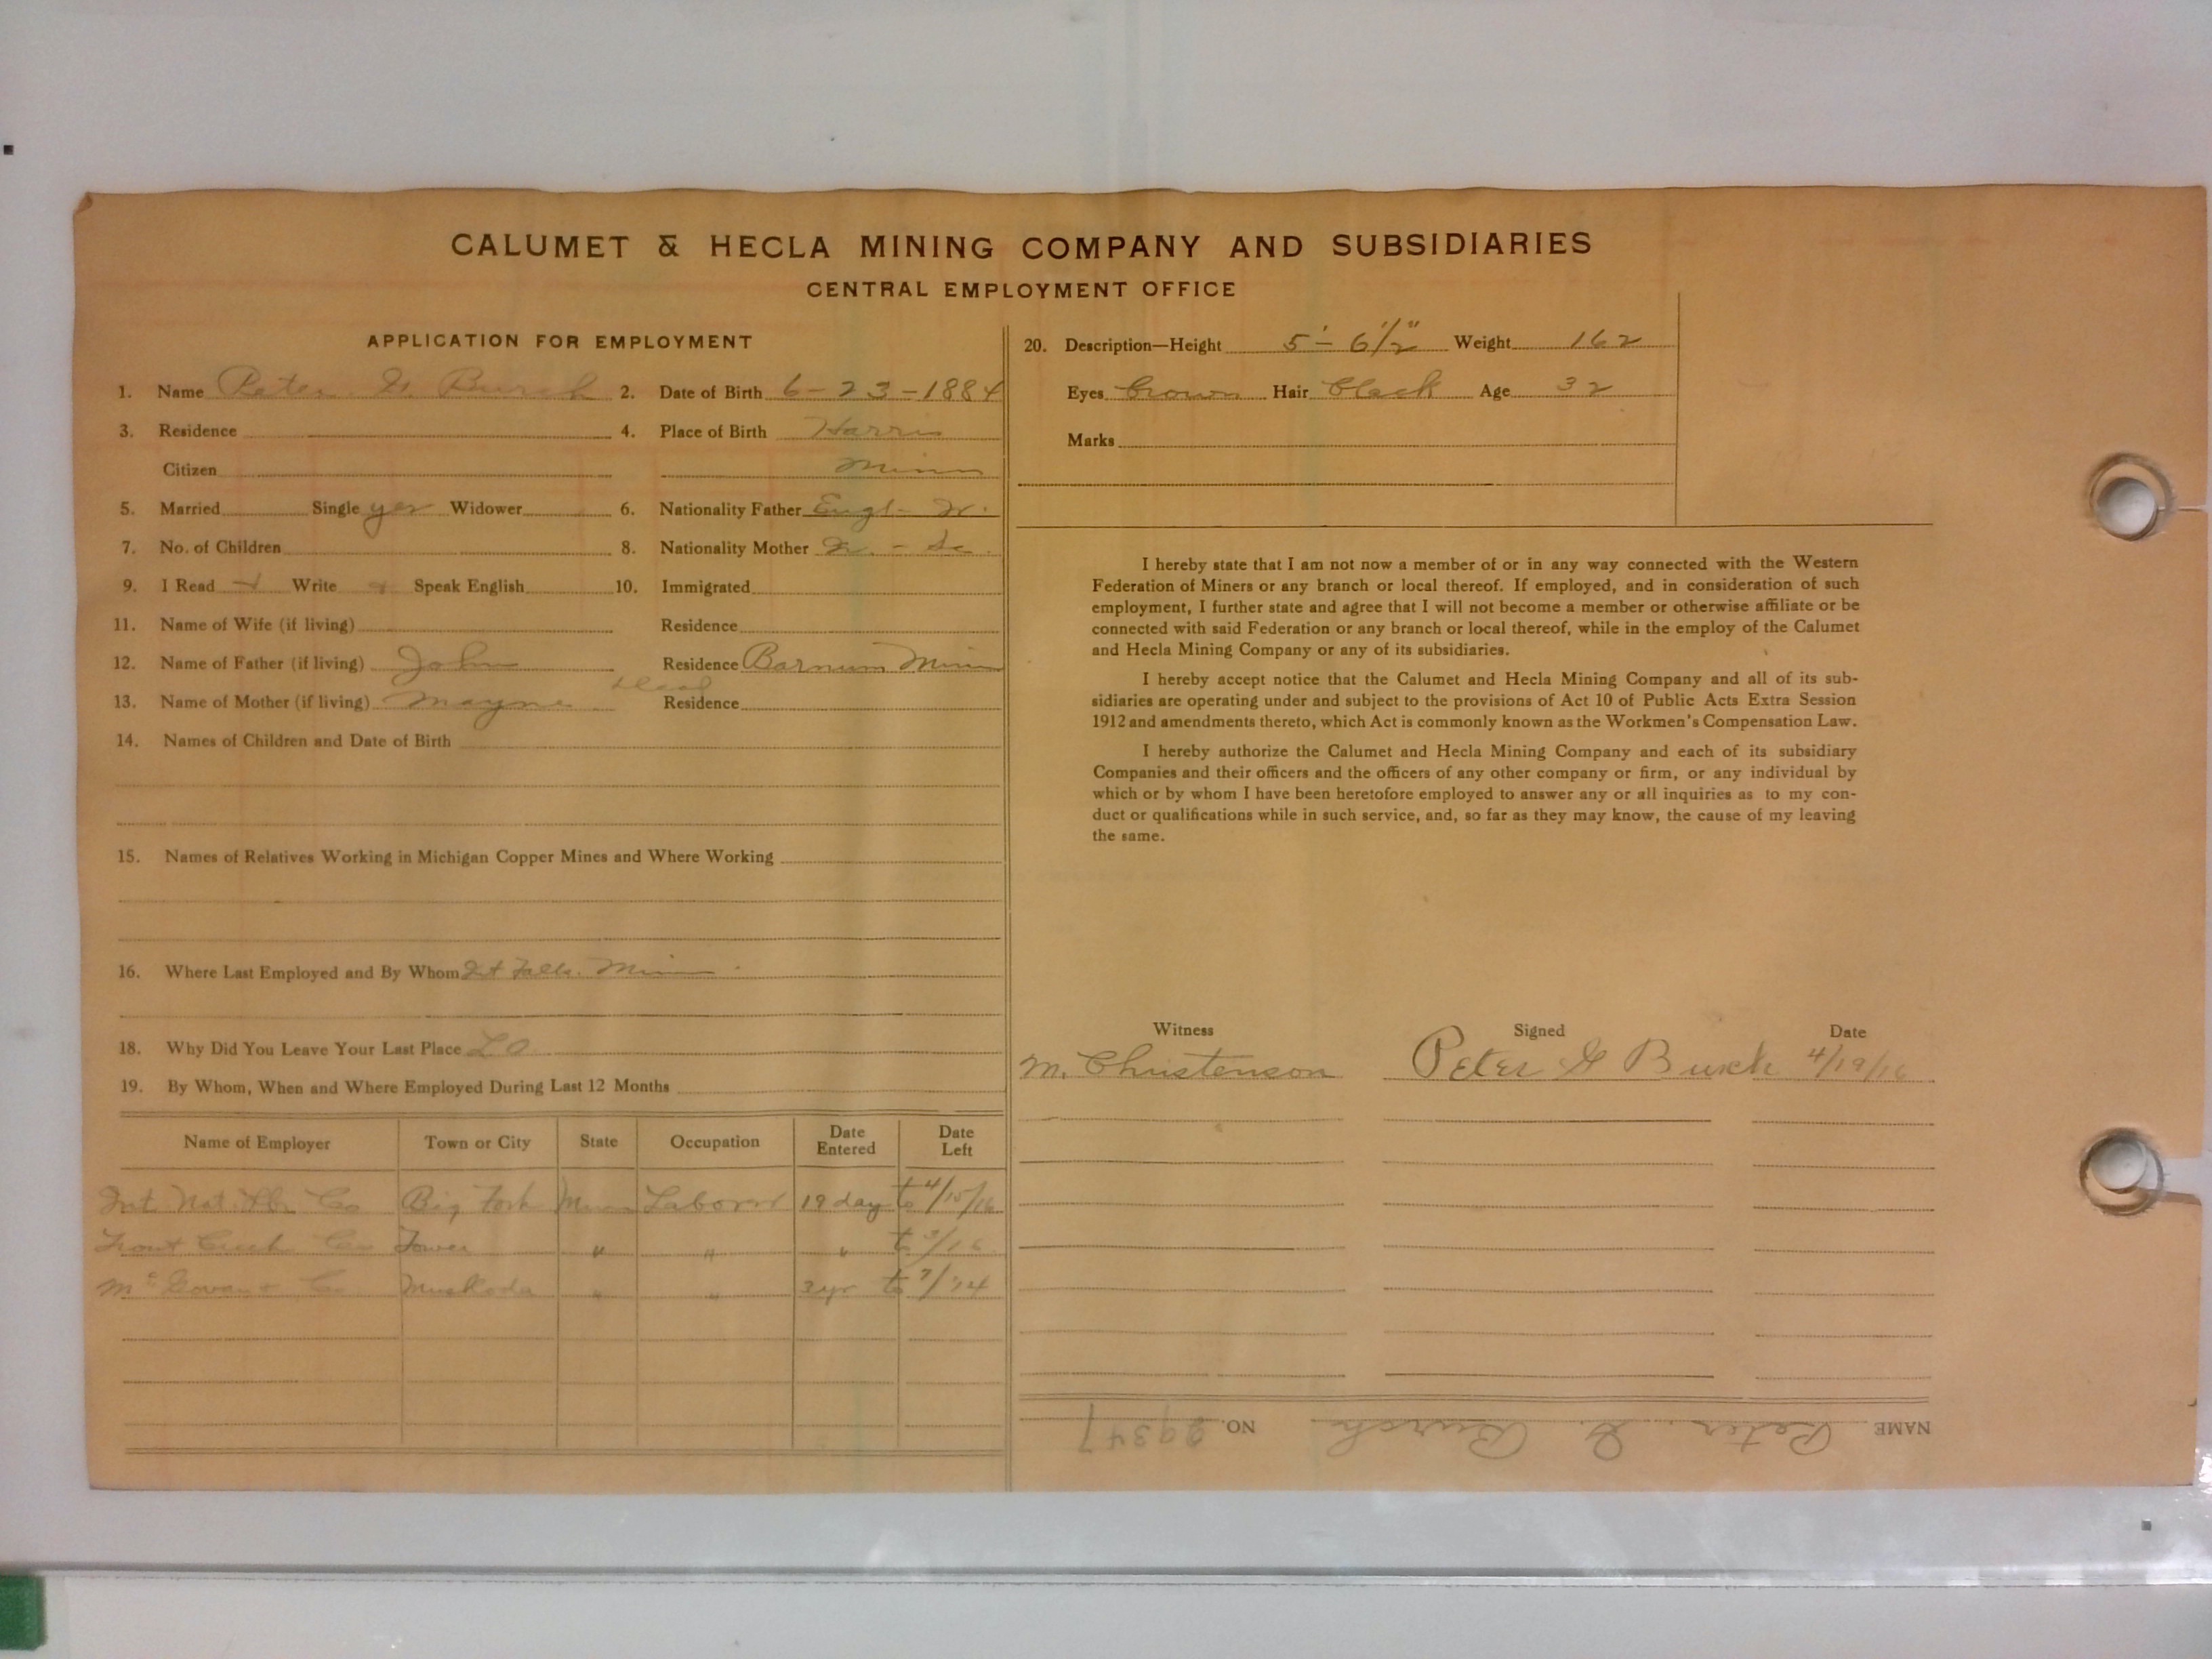 CALUMET & HECLA MINING COMPANY AND SUBSIDIARIES
CENTRAL EMPLOYMENT OFFICE
APPLICATION FOR EMPLOYMENT
1. Name Peter G. Burch 2. Date of Birth 6-23-1884
3. Residence 4. Place of Birth Harris
Citizen Minn
5. Married Single yes Widower 6. Nationality Father Engl-
7. No. of Children 8. Nationality Mother
9. I Read Write Speak English 10. Immigrated
11. Name of Wife (if living) Residence
12. Name of Father (if living) John Residence Barnum Minn
13. Name of Mother (if living) Mayne dead Residence
14. Names of Children and Date of Birth
15. Names of Relatives Working in Michigan Copper Mines and Where Working
16. Where Last Employed and By Whom Int Falls. Minn
18. Why Did You Leave Your Last Place LO
19. By Whom, When and Where Employed During Last 12 Months
Name of Employer Town or City State Occupation Date Entered Date Left
Int Nat. Lbr Co Big Fork Minn Laborer 19 day to 4/15/16
Trout Creek Co Tower " " " to 3/16
McGowan & Co Muskoda " " 3yr to 7/'14
20. Description—Height 5'-6 1/2" Weight 162
Eyes brown Hair black Age 32
Marks
I hereby state that I am not now a member of or in any way connected with the Western
Federation of Miners or any branch or local thereof. If employed, and in consideration of such
employment, I further state and agree that I will not become a member or otherwise affiliate or be
connected with said Federation or any branch or local thereof, while in the employ of the Calumet
and Hecla Mining Company or any of its subsidiaries.
I hereby accept notice that the Calumet and Hecla Mining Company and all of its sub-
sidiaries are operating under and subject to the provisions of Act 10 of Public Acts Extra Session
1912 and amendments thereto, which Act is commonly known as the Workmen's Compensation Law.
I hereby authorize the Calumet and Hecla Mining Company and each of its subsidiary
Companies and their officers and the officers of any other company or firm, or any individual by
which or by whom I have been heretofore employed to answer any or all inquiries as to my con-
duct or qualifications while in such service, and, so far as they may know, the cause of my leaving
the same.
Witness Signed Date
M. Christenson Peter G Burch 4/19/16
NAME Peter G. Burch NO. 29347